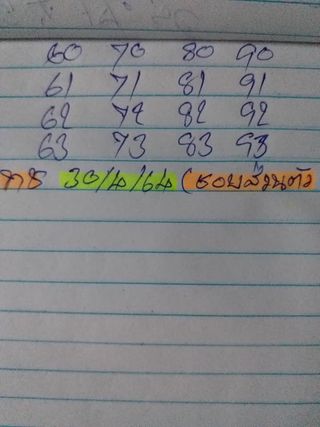 60 70 80 90
61 71 81 91
62 72 82 92
63 73 83 93
30/4/64 (ชอบส่วนตัว